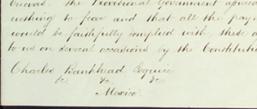 the Provisional Government
nothing to fear and that all the pay
would be faithfully complied with, these a
to us on several occasions by the Constitutio
Charles Bankhead Esquire
&c &c &c
Mexico